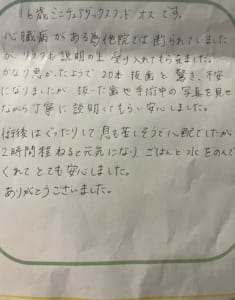 16歳ミニチュアダックスフンド オス です。
心臓病がある為他院では断られていました
が、リスクも説明の上 受け入れてもらえました。
かなり悪かったようで 20本 抜歯と 驚き、不安
になりましたが 抜いた歯や手術中の写真を見せ
ながら丁寧に説明してもらい安心しました。
術後はぐったりして 息も苦しそうで心配でしたが
2時間程ねると元気になり ごはんと水をのんで
くれて とても安心しました。
ありがとうございました。